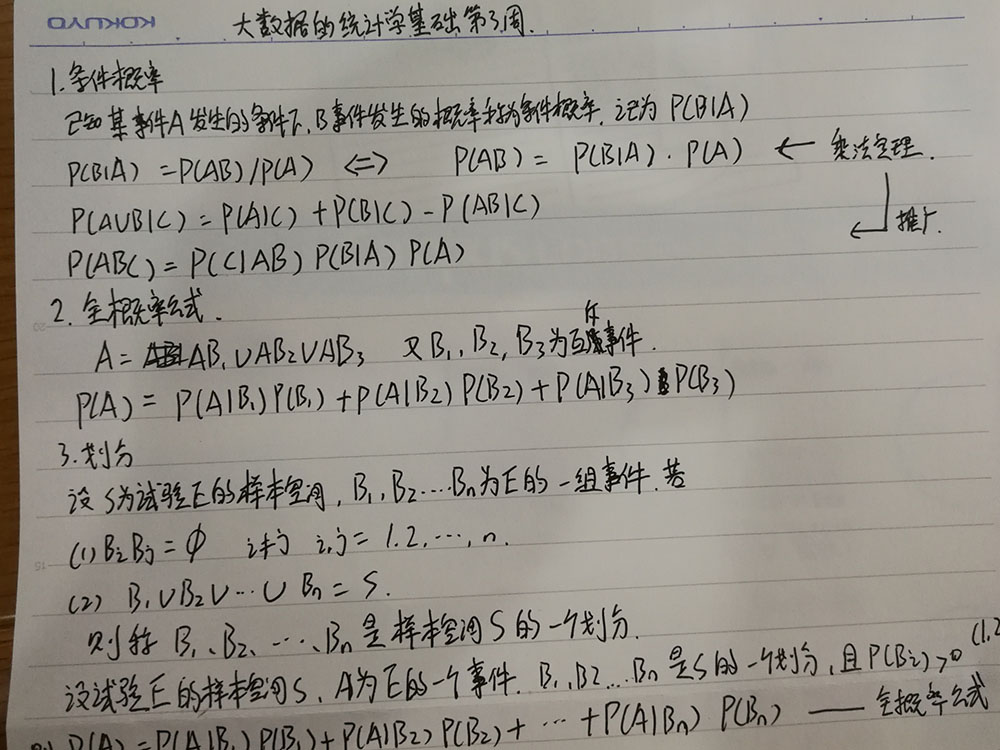 KOKUYO
大数据的统计学基础第3周.
1.条件概率
已知某事件A发生的条件下,B事件发生的概率称为条件概率.记为 P(B|A)
P(B|A) =P(AB)/P(A) <=> P(AB) = P(B|A)·P(A) ← 乘法定理.
P(AUB|C) = P(A|C) +P(B|C) - P(AB|C)
推广.
P(ABC) = P(C|AB) P(B|A) P(A)
2. 全概率公式.
A = AB₁∪AB₂∪AB₃ 又B₁, B₂, B₃为互斥事件.
P(A) = P(A|B₁)P(B₁) +P(A|B2) P(B2) + P(A|B₃) P(B₃)
3.划分
设 S为试验E的样本空间, B₁, B₂…Bn为E的一组事件.若
(1) BiBj = ϕ i≠j i,j = 1.2,…,n.
(2) B₁∪B₂∪…∪ Bn = S.
则称 B₁、B₂、…、Bn是样本空间S的一个划分.
设试验E的样本空间S, A为E的一个事件. B₁,B2…Bn是S的一个划分,且P(Bi)>0 (1,2
P(A) =P(A|B₁) P(B₁)+P(A|B2) P(B2)+ … +P(A|Bn) P(Bn) —— 全概率公式